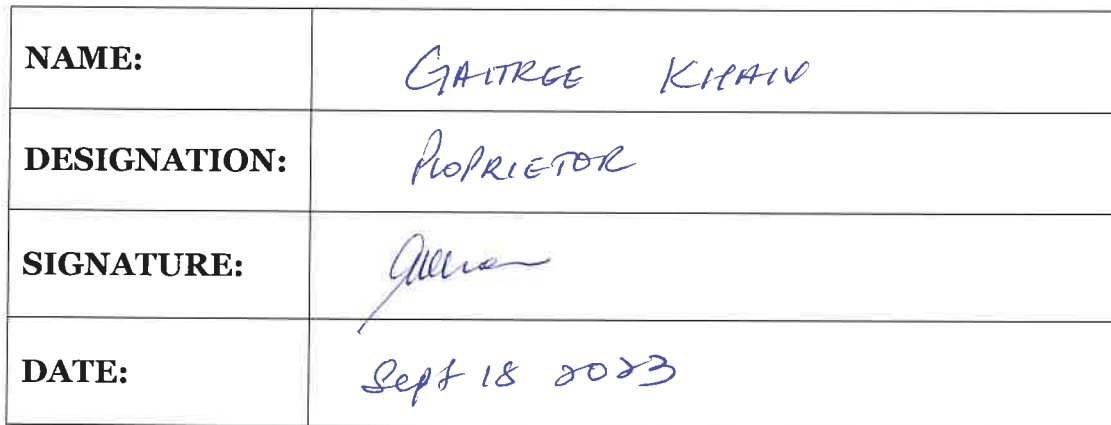 NAME: GAITREE KHAN
DESIGNATION: PROPRIETOR
SIGNATURE:
DATE: Sept 18 2023